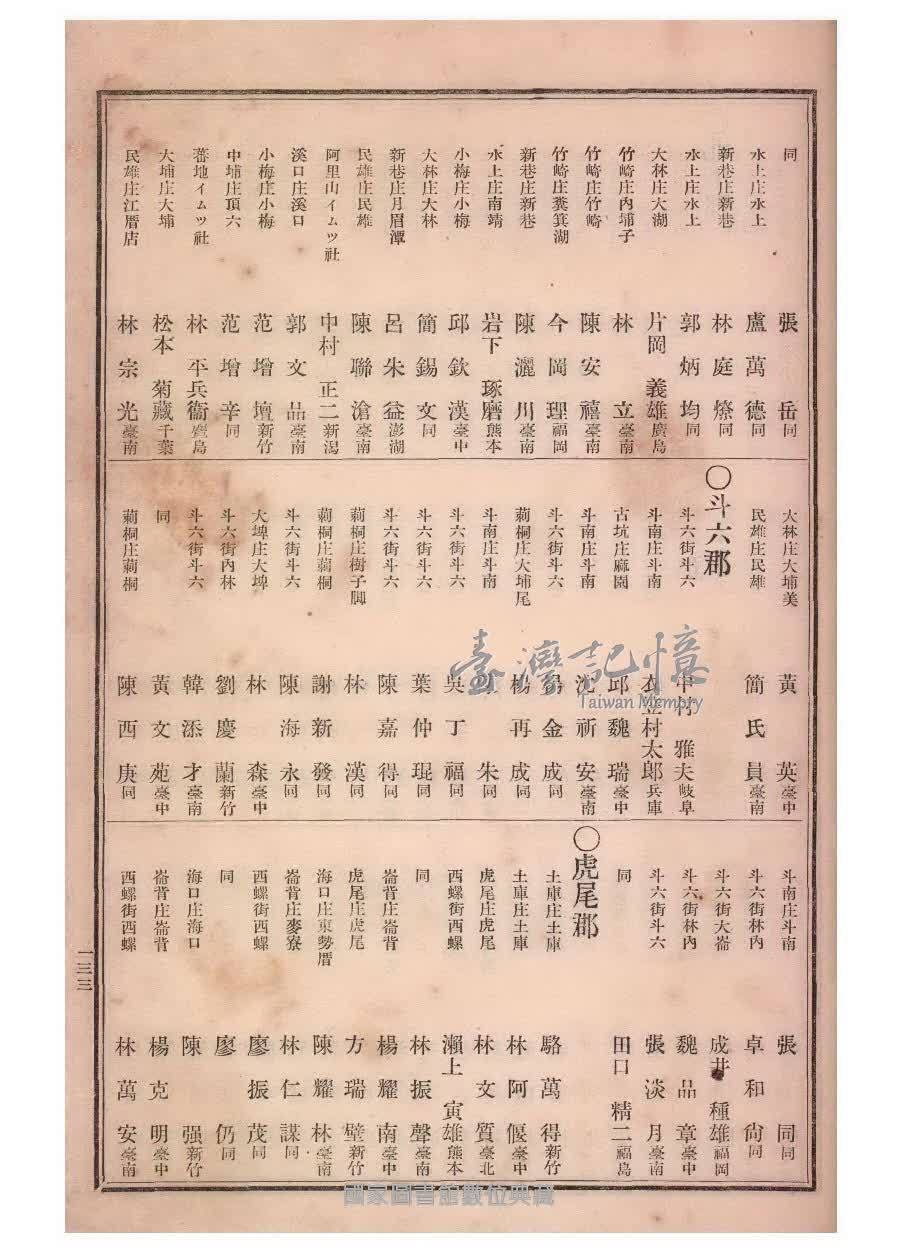 同　張岳同
水上庄水上　盧萬德同
新巷庄新巷　林庭燎同
水上庄水上　郭炳均同
大林庄大湖　片岡義雄廣島
竹崎庄內埔子　林立臺南
竹崎庄竹崎　陳安禧臺南
竹崎庄糞箕湖　今岡理福岡
新巷庄新巷　陳灑川臺南
水上庄南靖　岩下琢磨熊本
小梅庄小梅　邱欽漢臺中
大林庄大林　簡錫文同
新巷庄月眉潭　呂朱益澎湖
民雄庄民雄　陳聯滄臺南
阿里山イムツ社　中村正二新潟
溪口庄溪口　郭文品臺南
小梅庄小梅　范增壇新竹
中埔庄頂六　范增辛同
蕃地イムツ社　林平兵衞島
大埔庄大埔　松本菊藏千葉
民雄庄江厝店　林宗光臺南
大林庄大埔美　黃英臺中
民雄庄民雄　簡氏員臺南
〇斗六郡
斗六街斗六　中村雅夫岐阜
斗南庄斗南　衣笠村太郎兵庫
古坑庄麻園　邱魏瑞臺中
斗南庄斗南　沈祈安臺南
斗六街斗六　金成同
莿桐庄大埔尾　楊再成同
斗南庄斗南　朱同
斗六街斗六　吳丁福同
斗六街斗六　葉仲琨同
斗六街斗六　陳嘉得同
莿桐庄樹子脚　林漢同
莿桐庄莿桐　謝新發同
斗六街斗六　陳海永同
大埤庄大埤　林森臺中
斗六街內林　劉慶蘭新竹
斗六街斗六　韓添才臺南
同　黃文苑臺中
莿桐庄莿桐　陳西庚同
斗南庄斗南　張同同
斗六街林內　卓和尙同
斗六街大崙　成井種雄福岡
斗六街林內　魏品章臺中
斗六街斗六　張淡月臺南
同　田口精二福島
〇虎尾郡
土庫庄土庫　駱萬得新竹
土庫庄土庫　林阿偃臺中
虎尾庄虎尾　林文質臺北
西螺街西螺　瀨上寅雄熊本
同　林振聲臺南
崙背庄崙背　楊耀南臺中
虎尾庄虎尾　方瑞壁新竹
海口庄東勢厝　陳耀林臺南
崙背庄麥寮　林仁謀同
西螺街西螺　廖振茂同
同　廖仍同
海口庄海口　陳强新竹
崙背庄崙背　楊克明臺中
西螺街西螺　林萬安臺南
一三三
臺灣記憶
Taiwan Memory
國家圖書館數位典藏